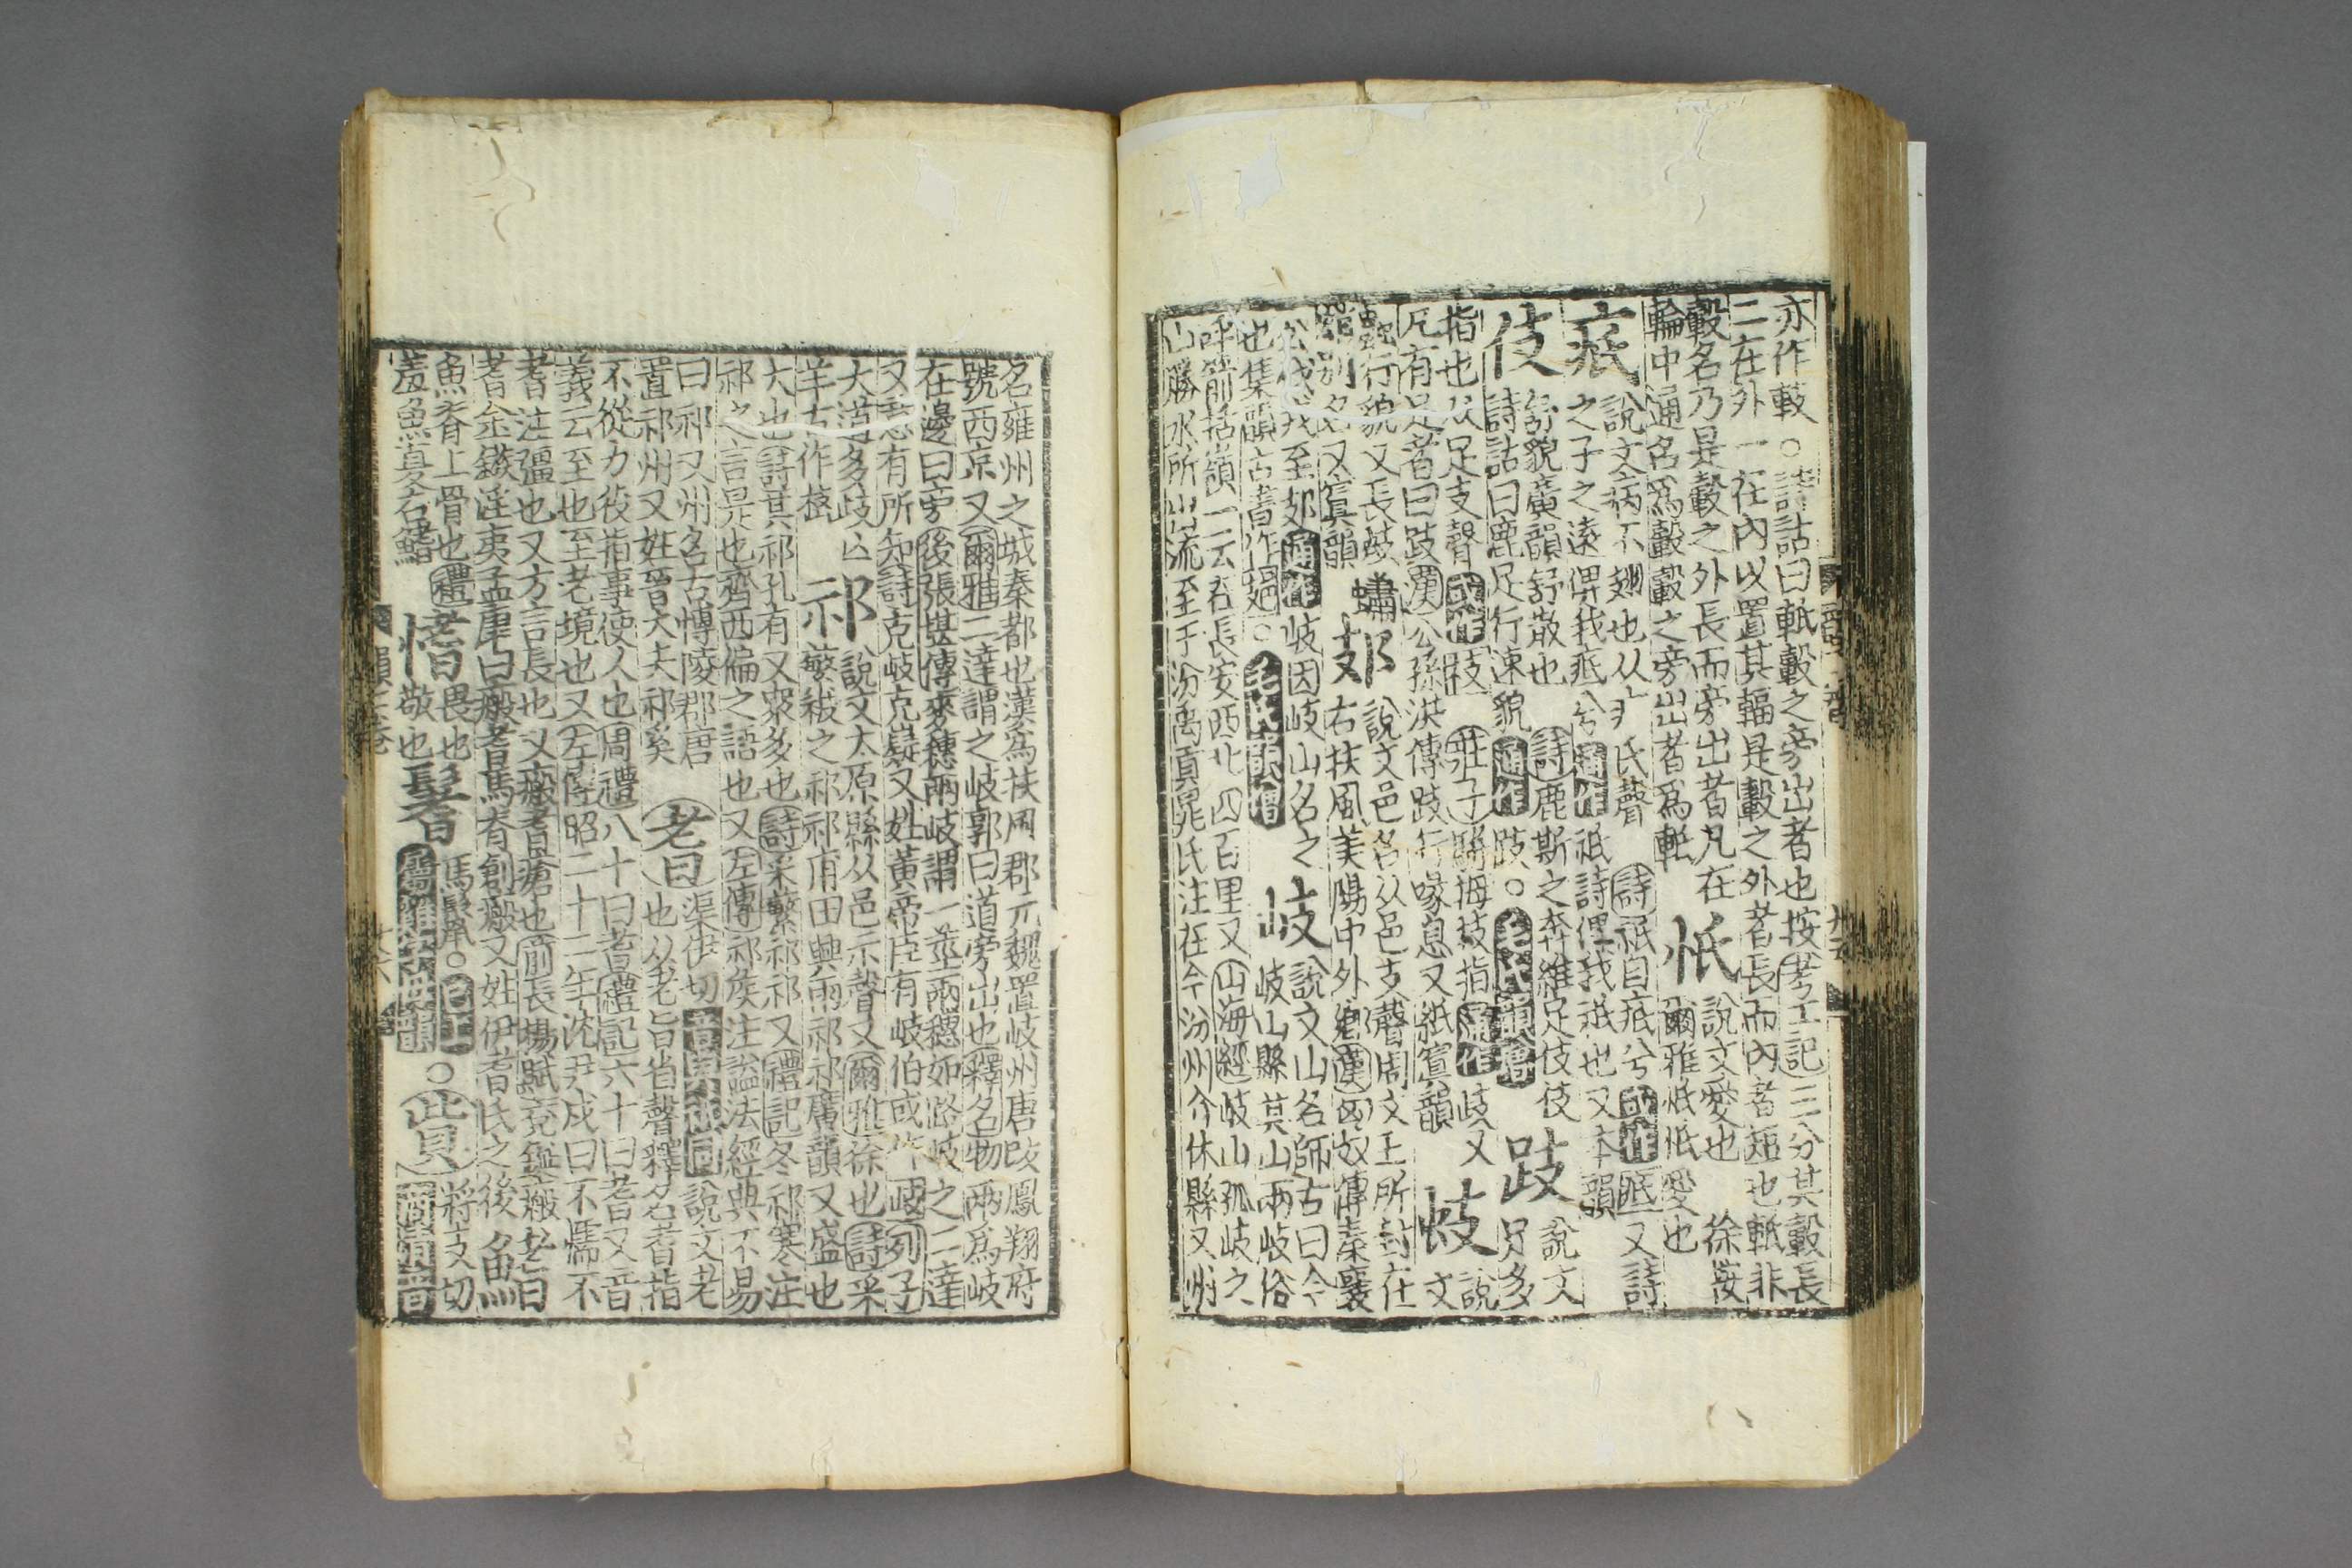 亦作䡋○詩詁曰軝轂之旁出者也按考工記三分其轂長
二在外一在內以置其輻是轂之外者長而內者短也軝非
轂名乃是轂之外長而旁出者凡在
輪中通名爲轂轂之旁出者爲軝
忯
說文愛也徐按
爾雅忯忯愛也
疧
說文病不翅也从疒氏聲詩祇自疧兮又詩
之子之遠俾我疧兮通作祇詩俾我祇也又本韻
伎
舒貌廣韻舒散也詩鹿斯之奔維足伎伎
詩詁曰鹿足行凍貌通作跂○毛氏韻增
跂
說文
足多
指也从足支聲或作枝莊子騈拇枝指通作歧又
凡有足者曰跂漢公孫洪傳跂行喙息又紙寘韻
蚑
說
文
行貌又長蚑蠨
蛸別名又寘韻
郂
說文邑名从邑支聲周文王所封在
右扶風美陽中外鄉漢匈奴傳秦襄
公伐戎至郂通作岐因岐山名之
也集韻古書作𡺺○毛氏韻增
岐
說文山名師古曰今
岐山縣其山兩岐俗
呼箭括嶺一云在長安西北四百里又山海經岐山孤岐之
山勝水所出流至于汾禹貢晁氏注在今汾州介休縣又州
名雍州之城秦都也漢爲扶風郡元魏置岐州唐改鳳翔府
號西京又爾雅二達謂之岐郭曰道旁出也釋名物兩爲岐
在邊曰旁後張堪傳麥穗兩岐謂一莖兩穗如路岐之二達
又意有所知詩克岐克嶷又姓黃帝臣有岐伯或作歧列子
大道多歧亡
羊古作𣛿
祁
說文太原縣从邑示聲又爾雅徐也詩采
蘩祓之祁祁甫田興雨祁祁廣韻又盛也
大也詩其祁孔有又眾多也詩采蘩祁祁又禮記冬祁寒注
祁之言是也齊西偏之語也又左傳祁侯注謚法經典不易
曰祁又州名古博陵郡唐
置祁州又姓晉大夫祁奚
耆
渠伊切音與祇同說文老
也从老旨省聲釋名耆指
不從力役指事使人也周禮八十曰耆禮記六十曰耆又音
義云至也至老境也又左傳昭二十三年沈尹戍曰不懦不
耆注彊也又方言長也又瘢耆瘡也前長楊賦兗鋋瘢耆
耆金鏃淫夷孟康曰瘢耆馬脊創瘢又姓伊耆氏之後
鰭
魚脊上骨也禮
羞魚夏右鰭
愭
畏也
敬也
鬐
馬鬣○已上
屬雉字母韻
○貲
將支切